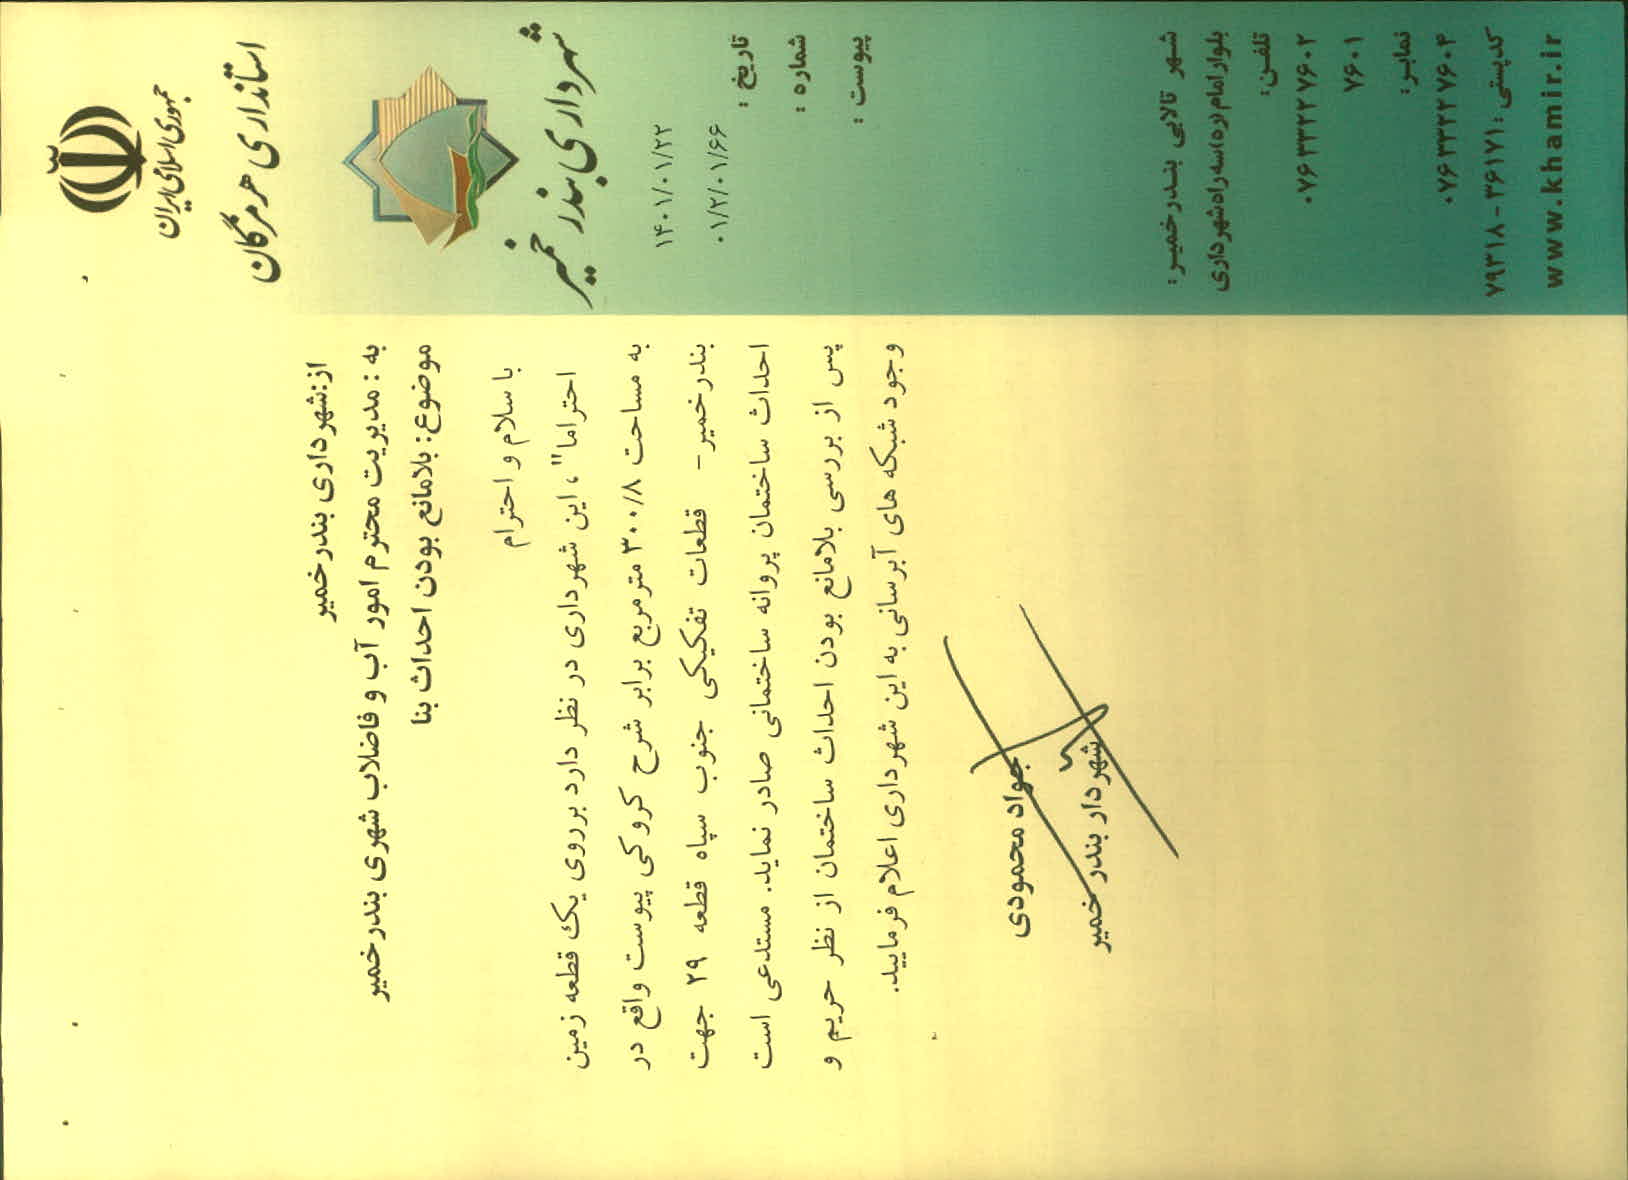 جمهوری اسلامی ایران
استانداری هرمزگان
شهرداری بندر خمیر
تاریخ : ۱۴۰۱/۰۱/۲۲
شماره : ۰۱/۲/۰۱/۶۶
پیوست :
شهر تالابی بندرخمیر :
بلوار امام (ره) سه راه شهرداری
تلفن:
۰۷۶۳۳۲۲۷۶۰۲
۷۶۰۱
نمابر:
۰۷۶۳۳۲۲۷۶۰۴
کدپستی: ۳۶۱۷۱-۷۹۳۱۸
www.khamir.ir
از:شهرداری بندرخمیر
به : مدیریت محترم امور آب و فاضلاب شهری بندرخمیر
موضوع: بلامانع بودن احداث بنا
با سلام و احترام
احتراما"، این شهرداری در نظر دارد برروی یک قطعه زمین
به مساحت ۳۰۰/۸ مترمربع برابر شرح کروکی پیوست واقع در
بندرخمیر- قطعات تفکیکی جنوب سپاه قطعه ۲۹ جهت
احداث ساختمان پروانه ساختمانی صادر نماید. مستدعی است
پس از بررسی بلامانع بودن احداث ساختمان از نظر حریم و
وجود شبکه های آبرسانی به این شهرداری اعلام فرمایید.
جواد محمودی
شهردار بندر خمیر